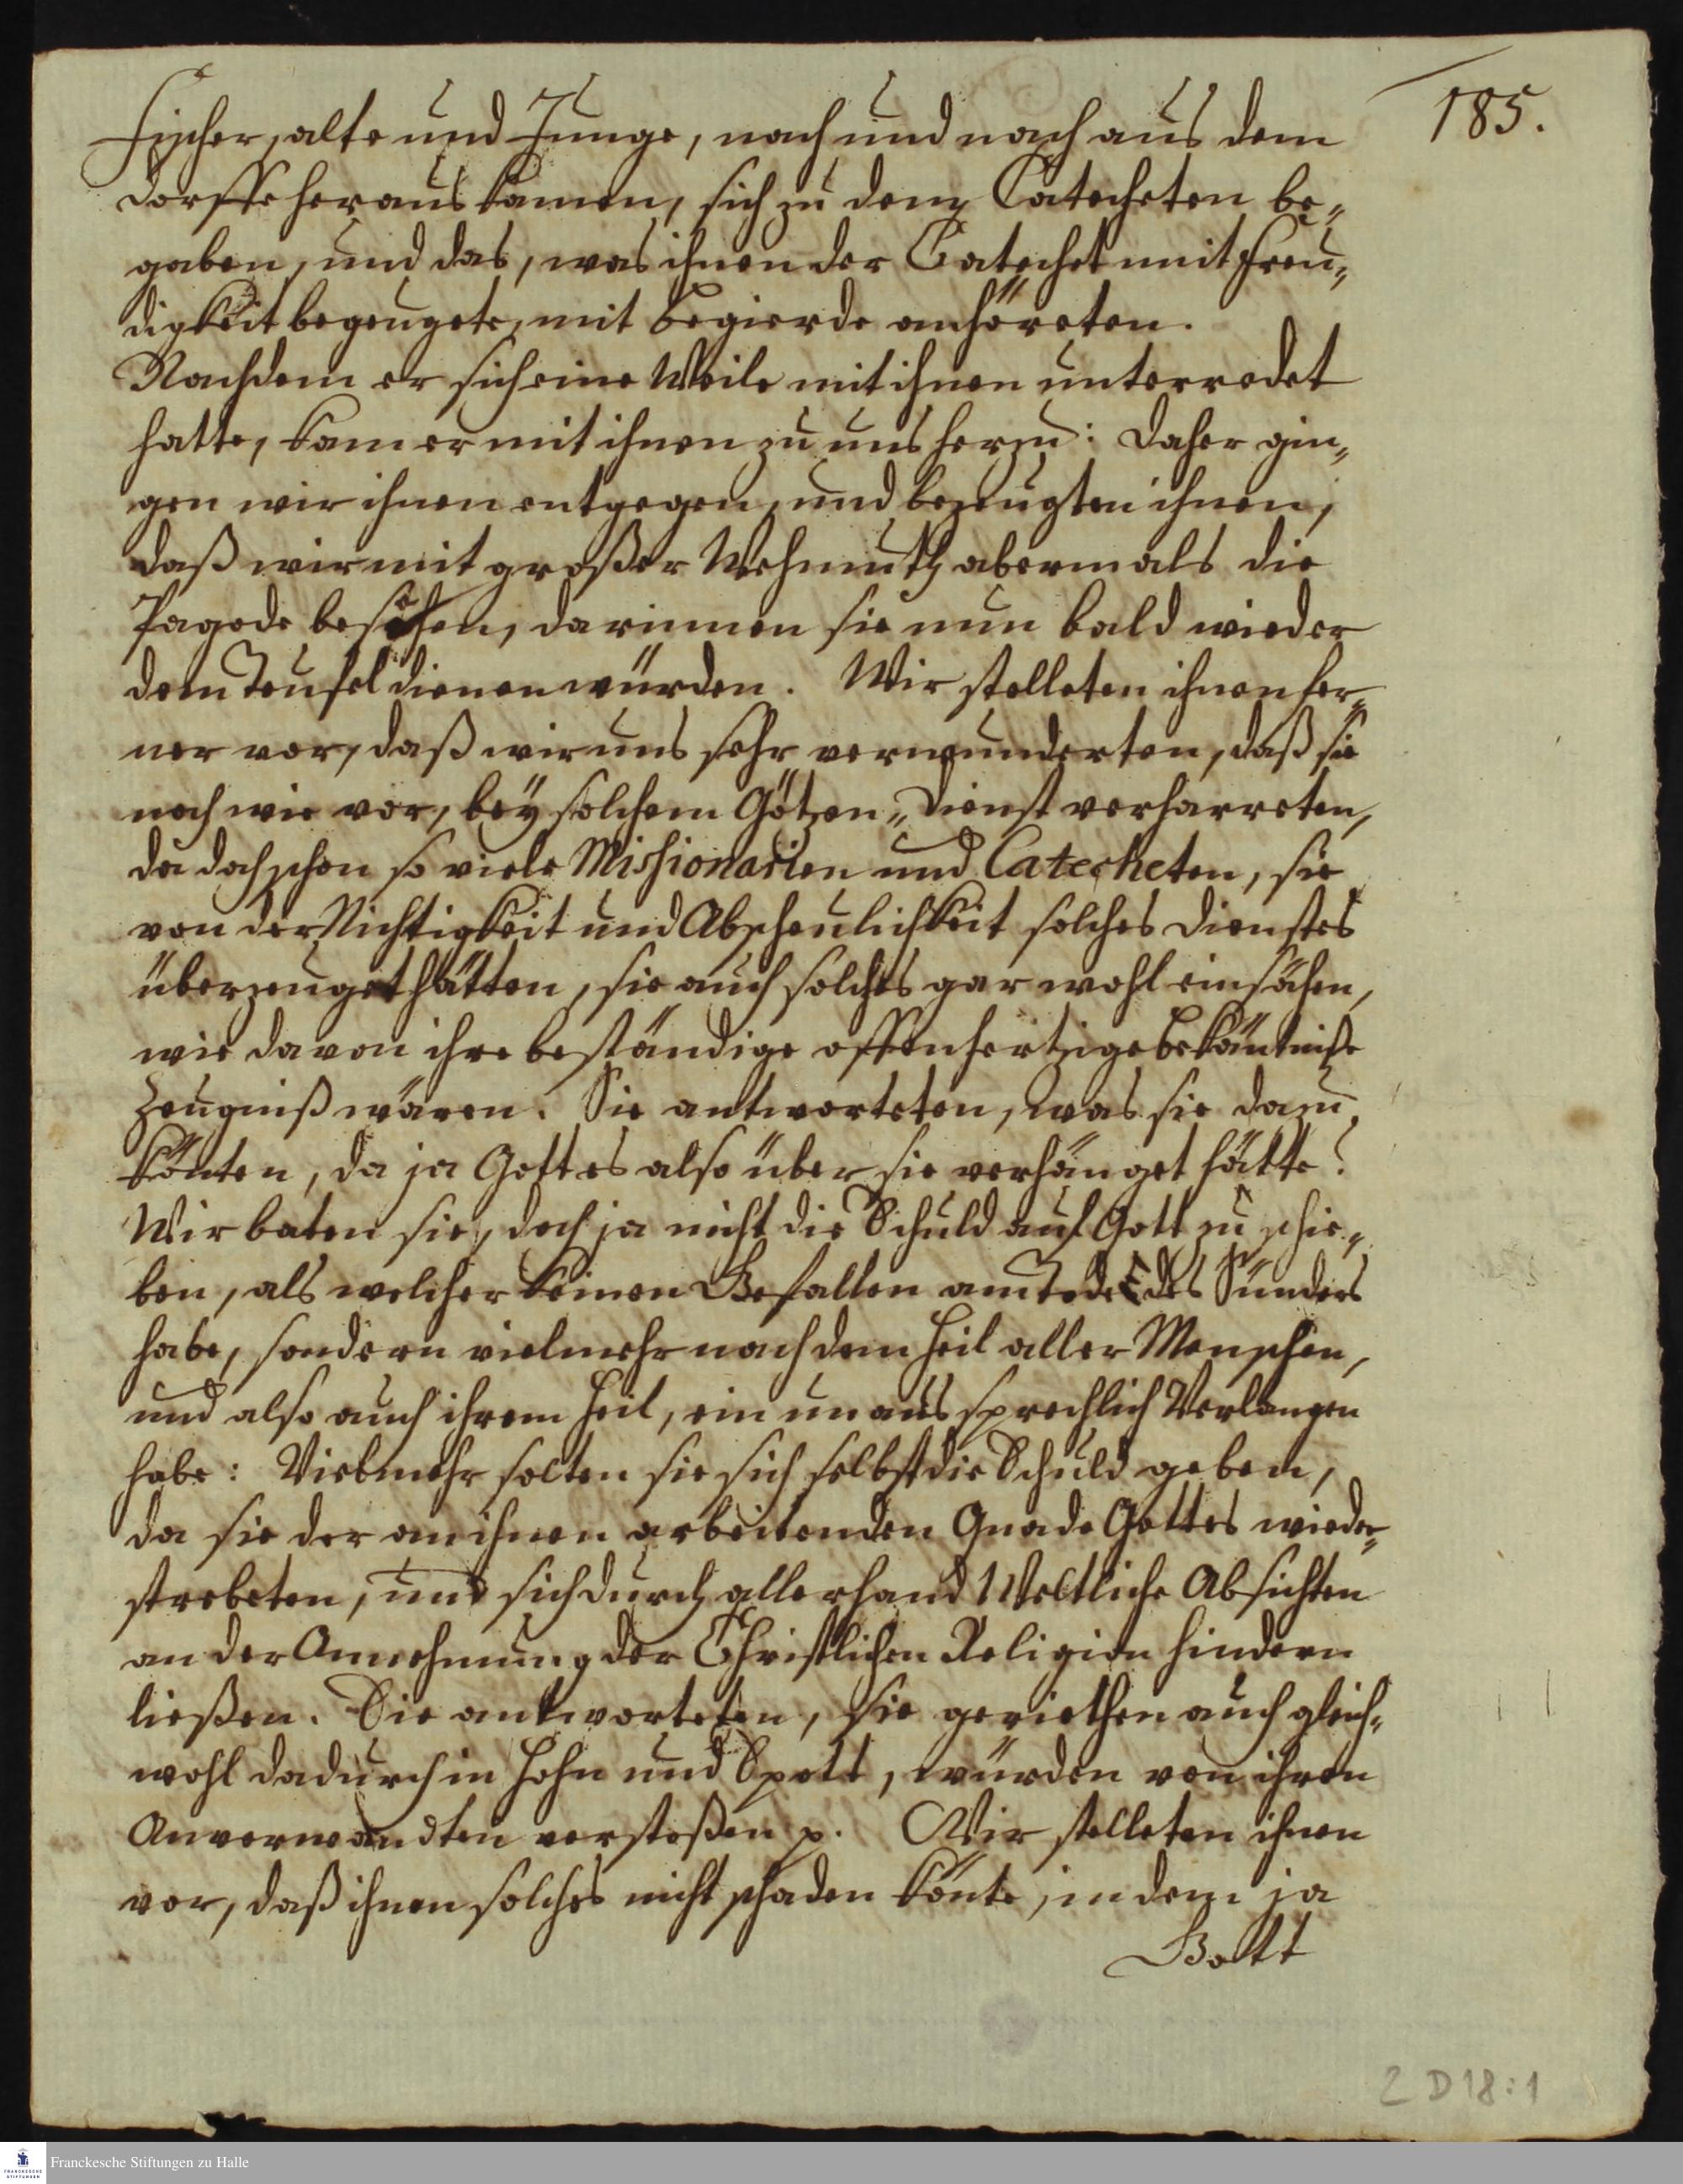 185.
Fischer, alte und Junge, nach und nach aus dem
Dorffe heraus kamen, sich zu dem Catecheten be„
gaben, und das, was ihnen der Catechet mit Freu„
digkeit bezeugete, mit Begierde anhöreten.
Nachdem er sich eine Weile mit ihnen unterredet
hatte, kam er mit ihnen zu uns herzu: Daher gin„
gen wir ihnen entgegen, und bezeugten ihnen,
daß wir mit großer Wehmuth abermals die
Pagode besähen, darinnen sie nun bald wieder
dem Teufel dienen würden. Wir stelleten ihnen fer„
ner vor, daß wir uns sehr verwunderten, daß sie
noch wie vor, bey solchem Götzen„Dienst verharreten,
da doch schon so viele Missionarien und Catecheten, sie
von der Nichtigkeit und Abscheulichkeit solches Dienstes
überzeuget hätten, sie auch solches gar wohl einsähen,
wie davon ihre beständige offenhertzige Bekäntniße
Zeugniß wären. Sie antworteten, was sie dazu
könten, da ja Gott es also über sie verhänget hätte?
Wir baten sie, doch ja nicht die Schuld auf Gott zu schie„
ben, als welcher keinen Gefallen am Tode des Sünders
habe, sondern vielmehr nach dem Heil aller Menschen,
und also auch ihrem Heil, ein unaussprechlich Verlangen
habe: Vielmehr solten sie sich selbst die Schuld geben,
da sie der an ihnen arbeitenden Gnade Gottes wieder„
strebeten, und sich durch allerhand Weltliche Absichten
an der Annehmung der Christlichen Religion hindern
ließen. Sie antworteten, sie geriethen auch gleich„
wohl dadurch in Hohn und Spott, würden von ihren
Anverwandten verstoßen p. Wir stelleten ihnen
vor, daß ihnen solches nicht schaden könte, indem ja
Gott
2 D 18 : 1
FRANCKESCHE STIFTUNGEN
Franckesche Stiftungen zu Halle